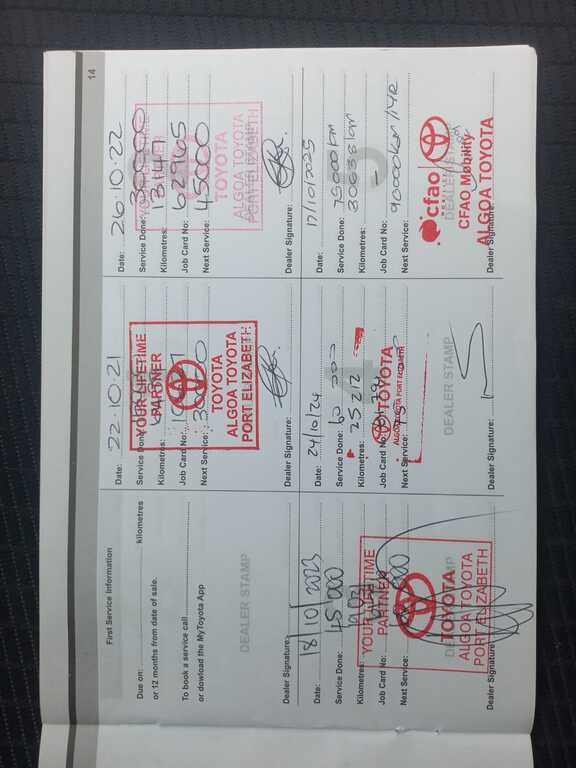 14
First Service Information
Due on: kilometres
or 12 months from date of sale.
To book a service call
or dowload the MyToyota App
DEALER STAMP
Dealer Signature:
Date: 22.10.21
Service Done:
Kilometres:
Job Card No:
Next Service: 30000
YOUR LIFETIME
PARTNER
TOYOTA
ALGOA TOYOTA
PORT ELIZABETH
Dealer Signature:
Date: 26.10.22
Service Done: 30000
Kilometres:
Job Card No: 629165
Next Service: 45000
TOYOTA
ALGOA TOYOTA
PORT ELIZABETH
Dealer Signature:
Date: 18/10/2023
Service Done: 45 000
Kilometres:
Job Card No:
Next Service:
YOUR LIFETIME
PARTNER
TOYOTA
ALGOA TOYOTA
PORT ELIZABETH
Dealer Signature:
Date: 24/10/24
Service Done: 60 000
Kilometres: 25212
Job Card No:
Next Service:
TOYOTA
ALGOA TOYOTA PORT ELIZABETH
DEALER STAMP
Dealer Signature:
Date: 17/10/2025
Service Done: 75000km
Kilometres: 30638km
Job Card No: –
Next Service: 90000km/1YR
cfao
MOBILITY
DEALER STAMP
CFAO Mobility
ALGOA TOYOTA
Dealer Signature: